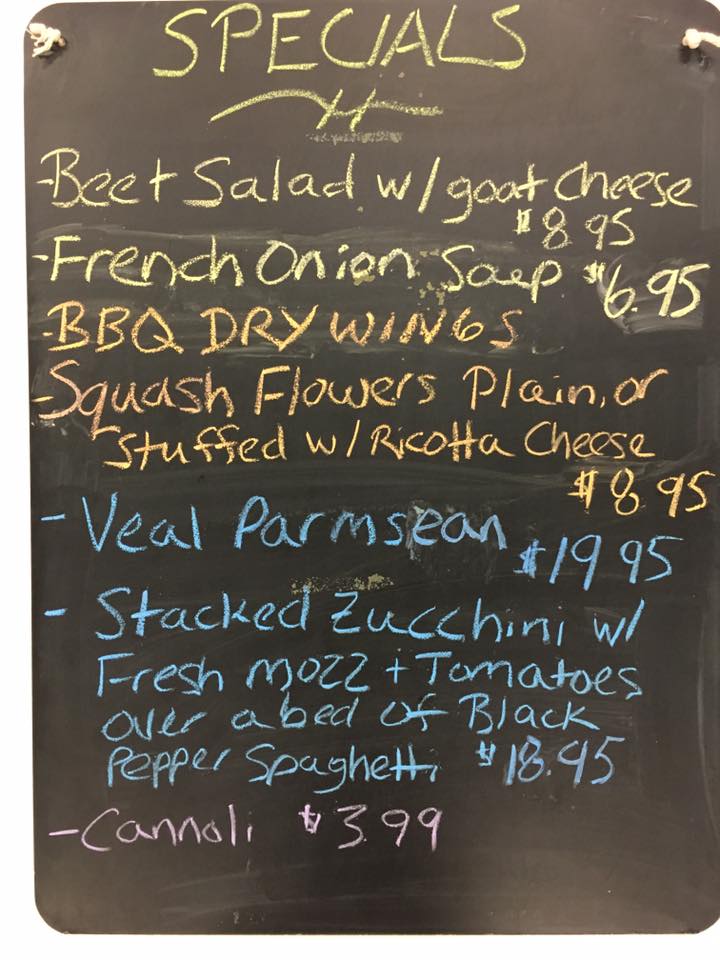 SPECIALS
-Beet Salad w/goat cheese
$8.95
-French Onion Soup $6.95
-BBQ DRY WINGS
-Squash Flowers Plain, or
stuffed w/Ricotta Cheese
$8.95
- Veal Parmsean $19.95
- Stacked Zucchini w/
Fresh mozz + Tomatoes
over a bed of Black
Pepper Spaghetti $18.95
-Cannoli $3.99